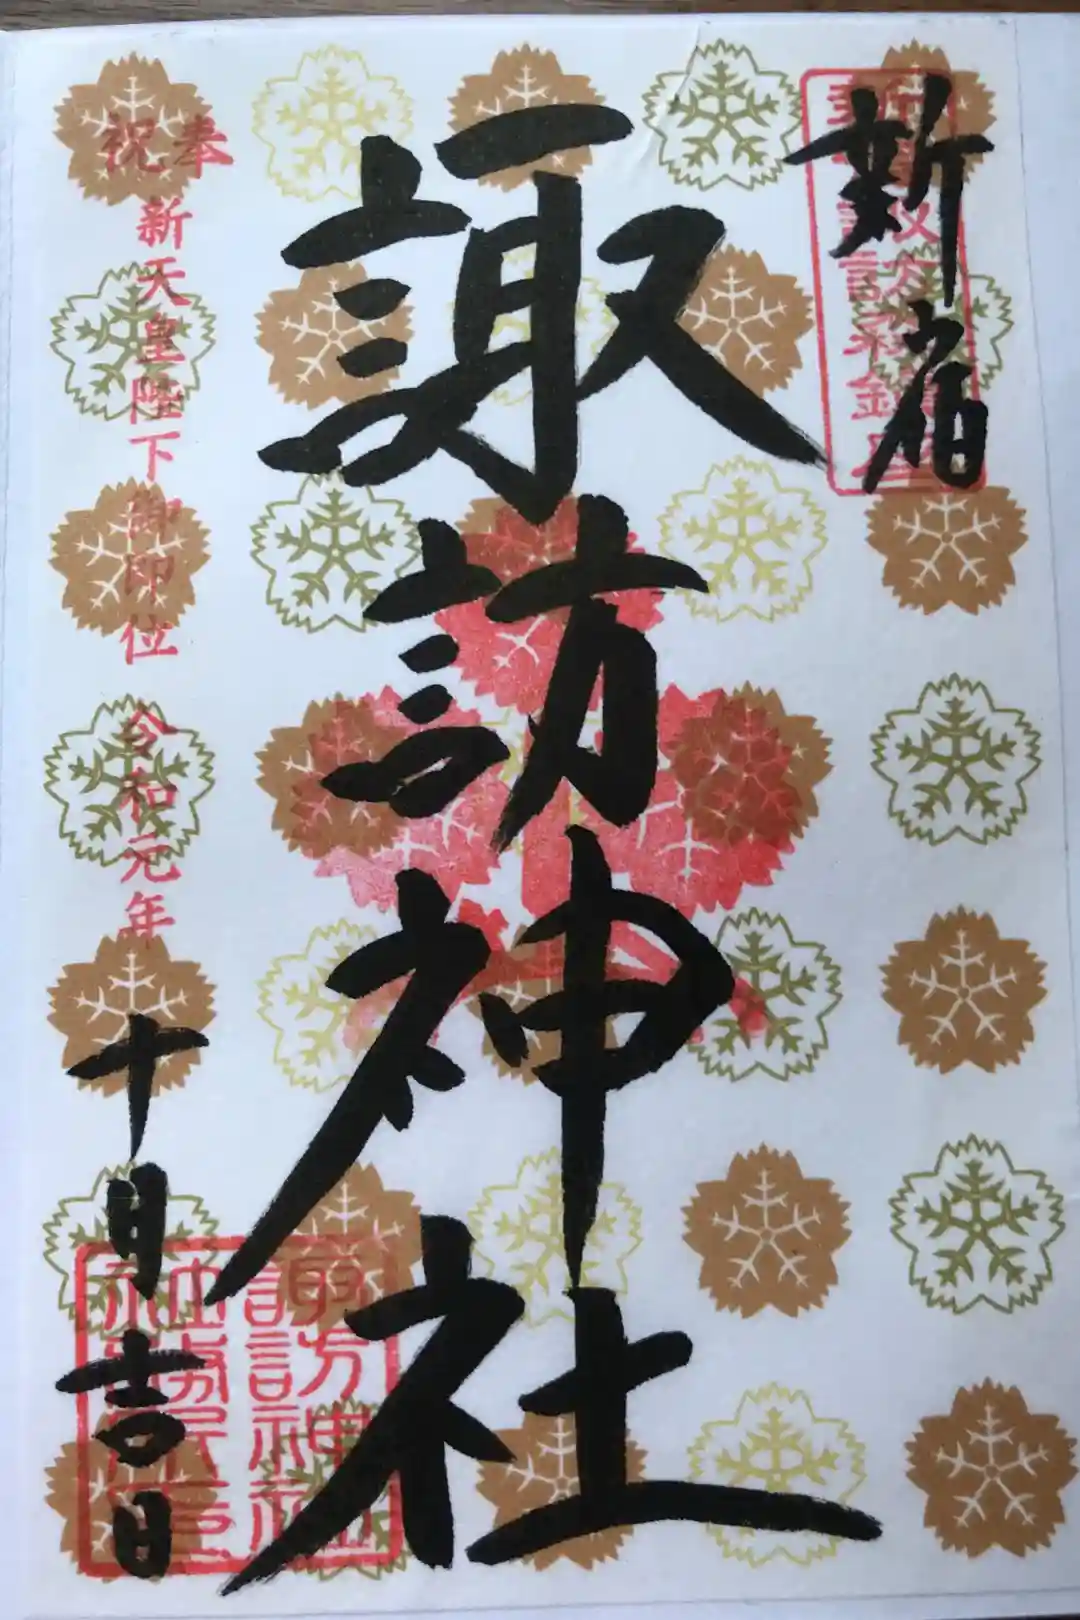 新宿
諏訪神社
奉祝
新天皇陛下御即位 令和元年
十月吉日
諏訪神社